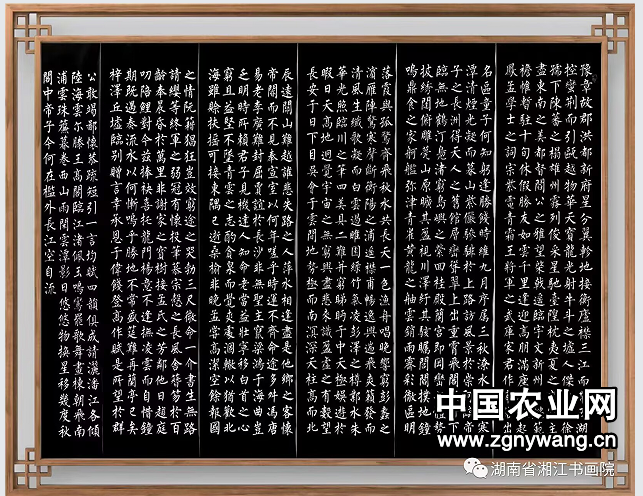 豫章故郡洪都新府星分翼軫地接衡廬襟三江而湖
控蠻荊而引甌越物華天寶龍光射牛斗之墟人傑徐
孺下陳蕃之榻雄州霧列俊采星馳臺隍枕夷夏之主
盡東南之美都督閻公之雅望棨戟遙臨宇文新州範
襜帷暫駐十旬休假勝友如雲千里逢迎高朋滿座起
鳳孟學士之詞宗紫電青霜王將軍之武庫家君
名區童子何知躬逢勝餞時維九月序屬三秋潦水寒
潭清煙光凝而暮山紫儼驂騑於上路訪風景於崇帝
子之長洲得天人之舊館層巒聳翠上出重霄飛閣下
臨無地鶴汀鳧渚窮島嶼之縈回桂殿蘭宮即岡巒勢
披繡闥俯雕甍山原曠其盈視川澤紆其駭矚閭閻撲地鐘
鳴鼎食之家舸艦彌津青雀黃龍之舳雲銷雨霽彩徹區明
落霞與孤鶩齊飛秋水共長天一色漁舟唱晚響窮彭蠡之
濱雁陣驚寒聲斷衡陽之浦遙襟甫暢逸興遄飛爽籟發而
清風生纖歌凝而白雲遏睢園綠竹氣凌彭澤之樽鄴水朱
華光照臨川之筆四美具二難并窮睇眄于中天極娛遊於
暇日天高地迥覺宇宙之無窮興盡悲來識盈虛之有數望
長安于日下目吳會于雲間地勢極而南溟深天柱高而北
辰遠關山難越誰悲失路之人萍水相逢盡是他鄉之客懷
帝閽而不見奉宣室以何年嗟乎時運不齊命途多舛馮唐
易老李廣難封屈賈誼於長沙非無聖主竄梁鴻于海曲豈
乏明時所賴君子見機達人知命老當益壯寧移白首之心
窮且益堅不墜青雲之志酌貪泉而覺爽處涸轍以猶歡北
海雖賒扶搖可接東隅已逝桑榆非晚孟嘗高潔空餘報國
之情阮籍猖狂豈效窮途之哭勃三尺微命一介書生無路
請纓等終軍之弱冠有懷投筆慕宗愨之長風舍簪笏於百
齡奉晨昏於萬里非謝家之寶樹接孟氏之芳鄰他日趨庭
叨陪鯉對今茲捧袂喜托龍門楊意不逢撫凌雲而自惜鍾
期既遇奏流水以何慚嗚乎勝地不常盛筵難再蘭亭已矣
梓澤丘墟臨別贈言幸承恩于偉餞登高作賦是所望於群
公敢竭鄙懷恭疏短引一言均賦四韻俱成請灑潘江各傾
陸海雲爾滕王高閣臨江渚佩玉鳴鸞罷歌舞畫棟朝飛南
浦雲珠簾暮卷西山雨閑雲潭影日悠悠物換星移幾度秋
閣中帝子今何在檻外長江空自流
中国农业网
www.zgnywang.cn
湖南省湘江书画院